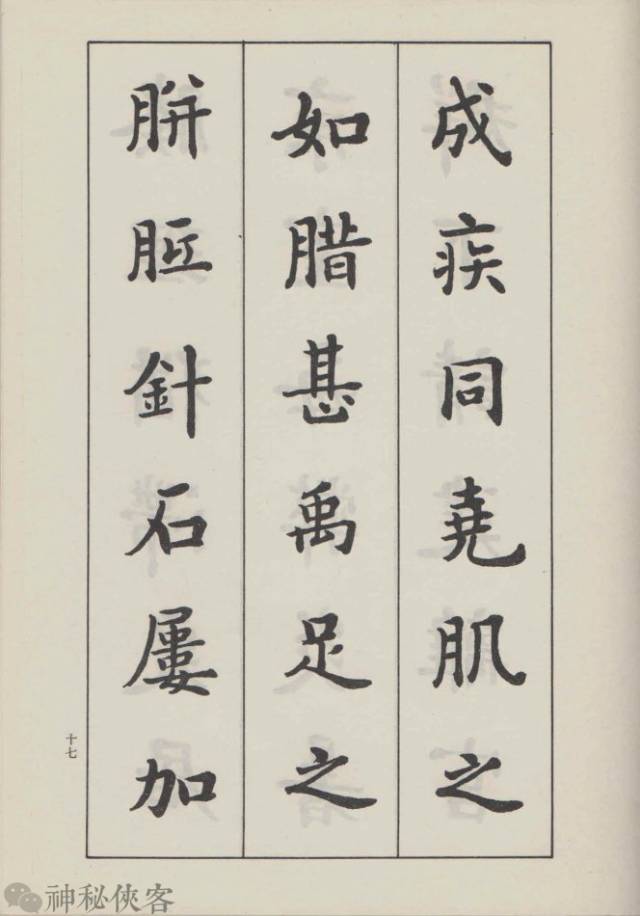 成疾同堯肌之
如腊甚禹足之
胼胝針石屢加
十七
神秘俠客